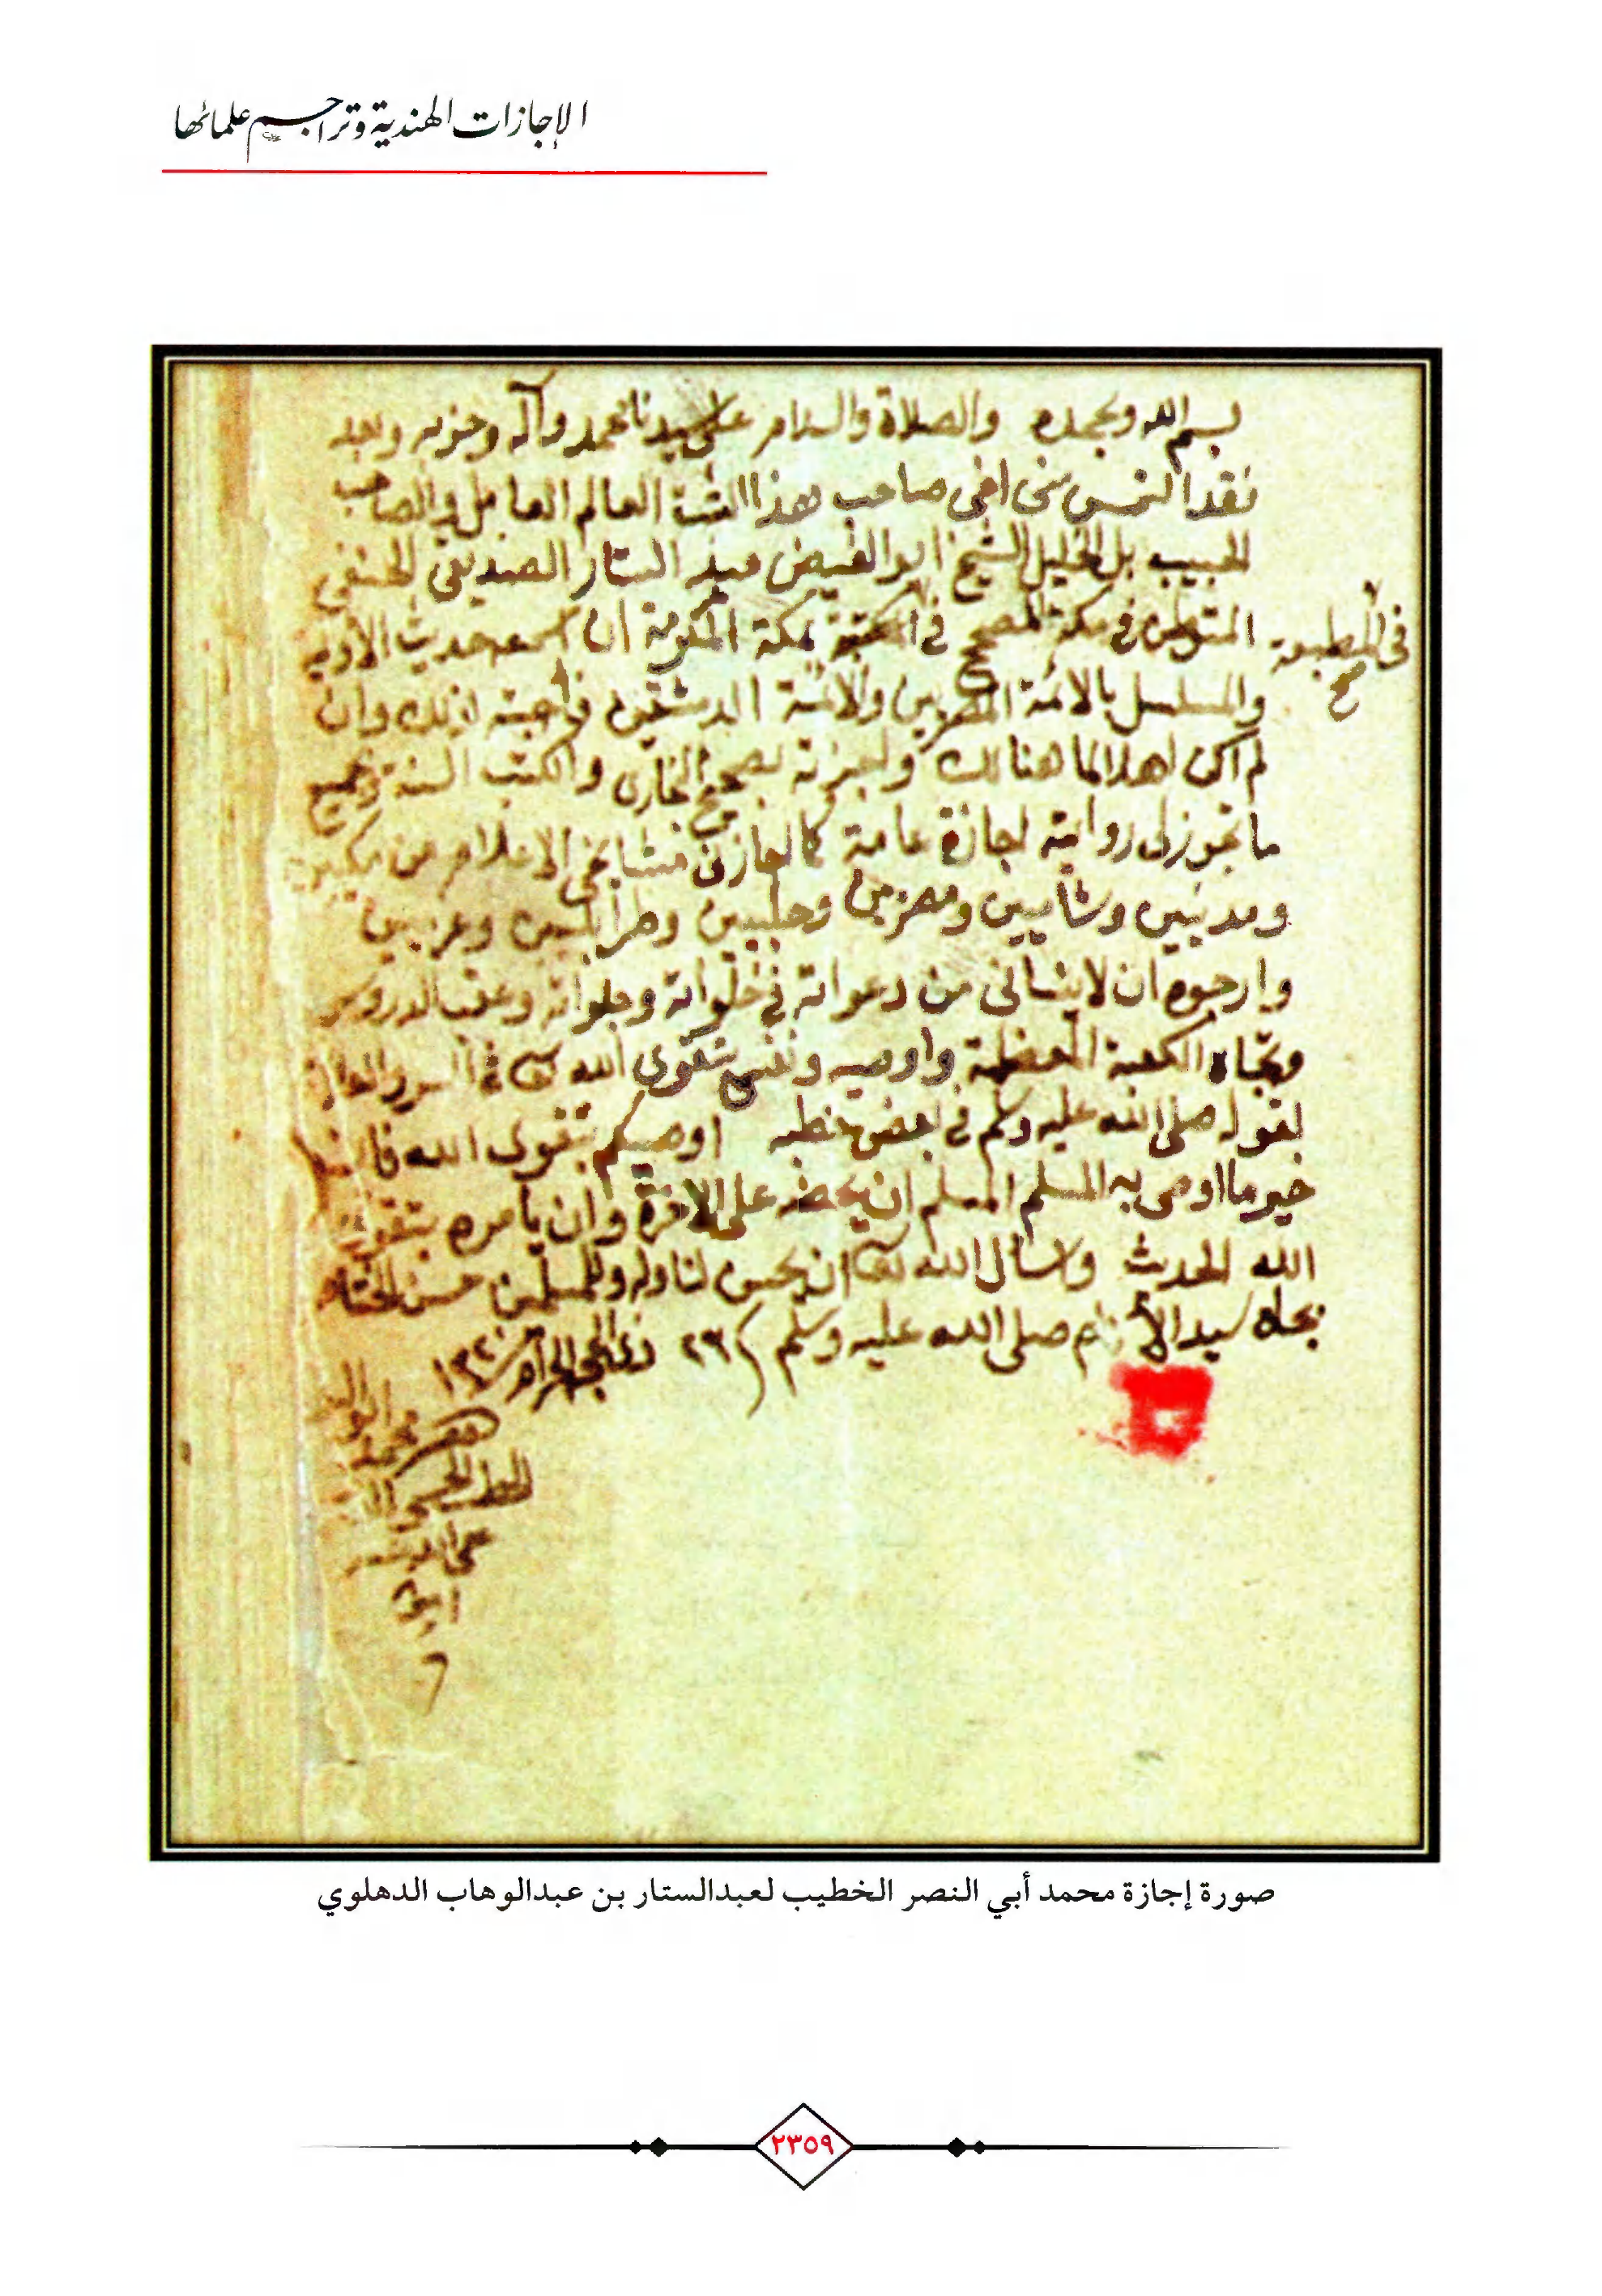 الإجازات الهندية وتراجم علمائها
بسم الله وبحمده والصلاة والسلام على سيدنا محمد وآله وحزبه وبعد
فقد التمس مني اخي صاحب هذا الثبت العالم العامل والصاحب
الحبيب بل الخليل الشيخ ابو الفيض عبد الستار الصديقي الحنفي
المتوطن في مكة المصحح في المكتبة بمكة المكرمة ان اسمعه حديث الأولية
في المطبعة صح
والمسلسل بالائمة المصريين والائمة الدمشقيين فاجبته لذلك وان
لم اكن اهلا لما هنالك واجزته بصحيح البخاري والكتب الستة وجميع
ما تجوز لي روايته اجازة عامة كما اجازني مشايخي الاعلام من مكيين
ومدنيين وشاميين ومصريين وحلبيين وطرابلسيين
وارجوه ان لا ينساني من دعواته في خلواته وجلواته وعقب الدروس
وتجاه الكعبة المعظمة واوصيه ونفسي بتقوى الله تعالى في السر
لقوله صلى الله عليه وسلم في بعض خطبه اوصيكم بتقوى الله فانه
خير ما اوصى به المسلم المسلم ان يحضه على الآخرة وان يأمره بتقوى
الله الحديث واسأل الله تعالى ان يحسن لنا وله وللمسلمين حسن الختام
بجاه سيد الأنام صلى الله عليه وسلم ٢٦ ذي الحجة الحرام
صورة إجازة محمد أبي النصر الخطيب لعبدالستار بن عبدالوهاب الدهلوي
٢٣٥٩